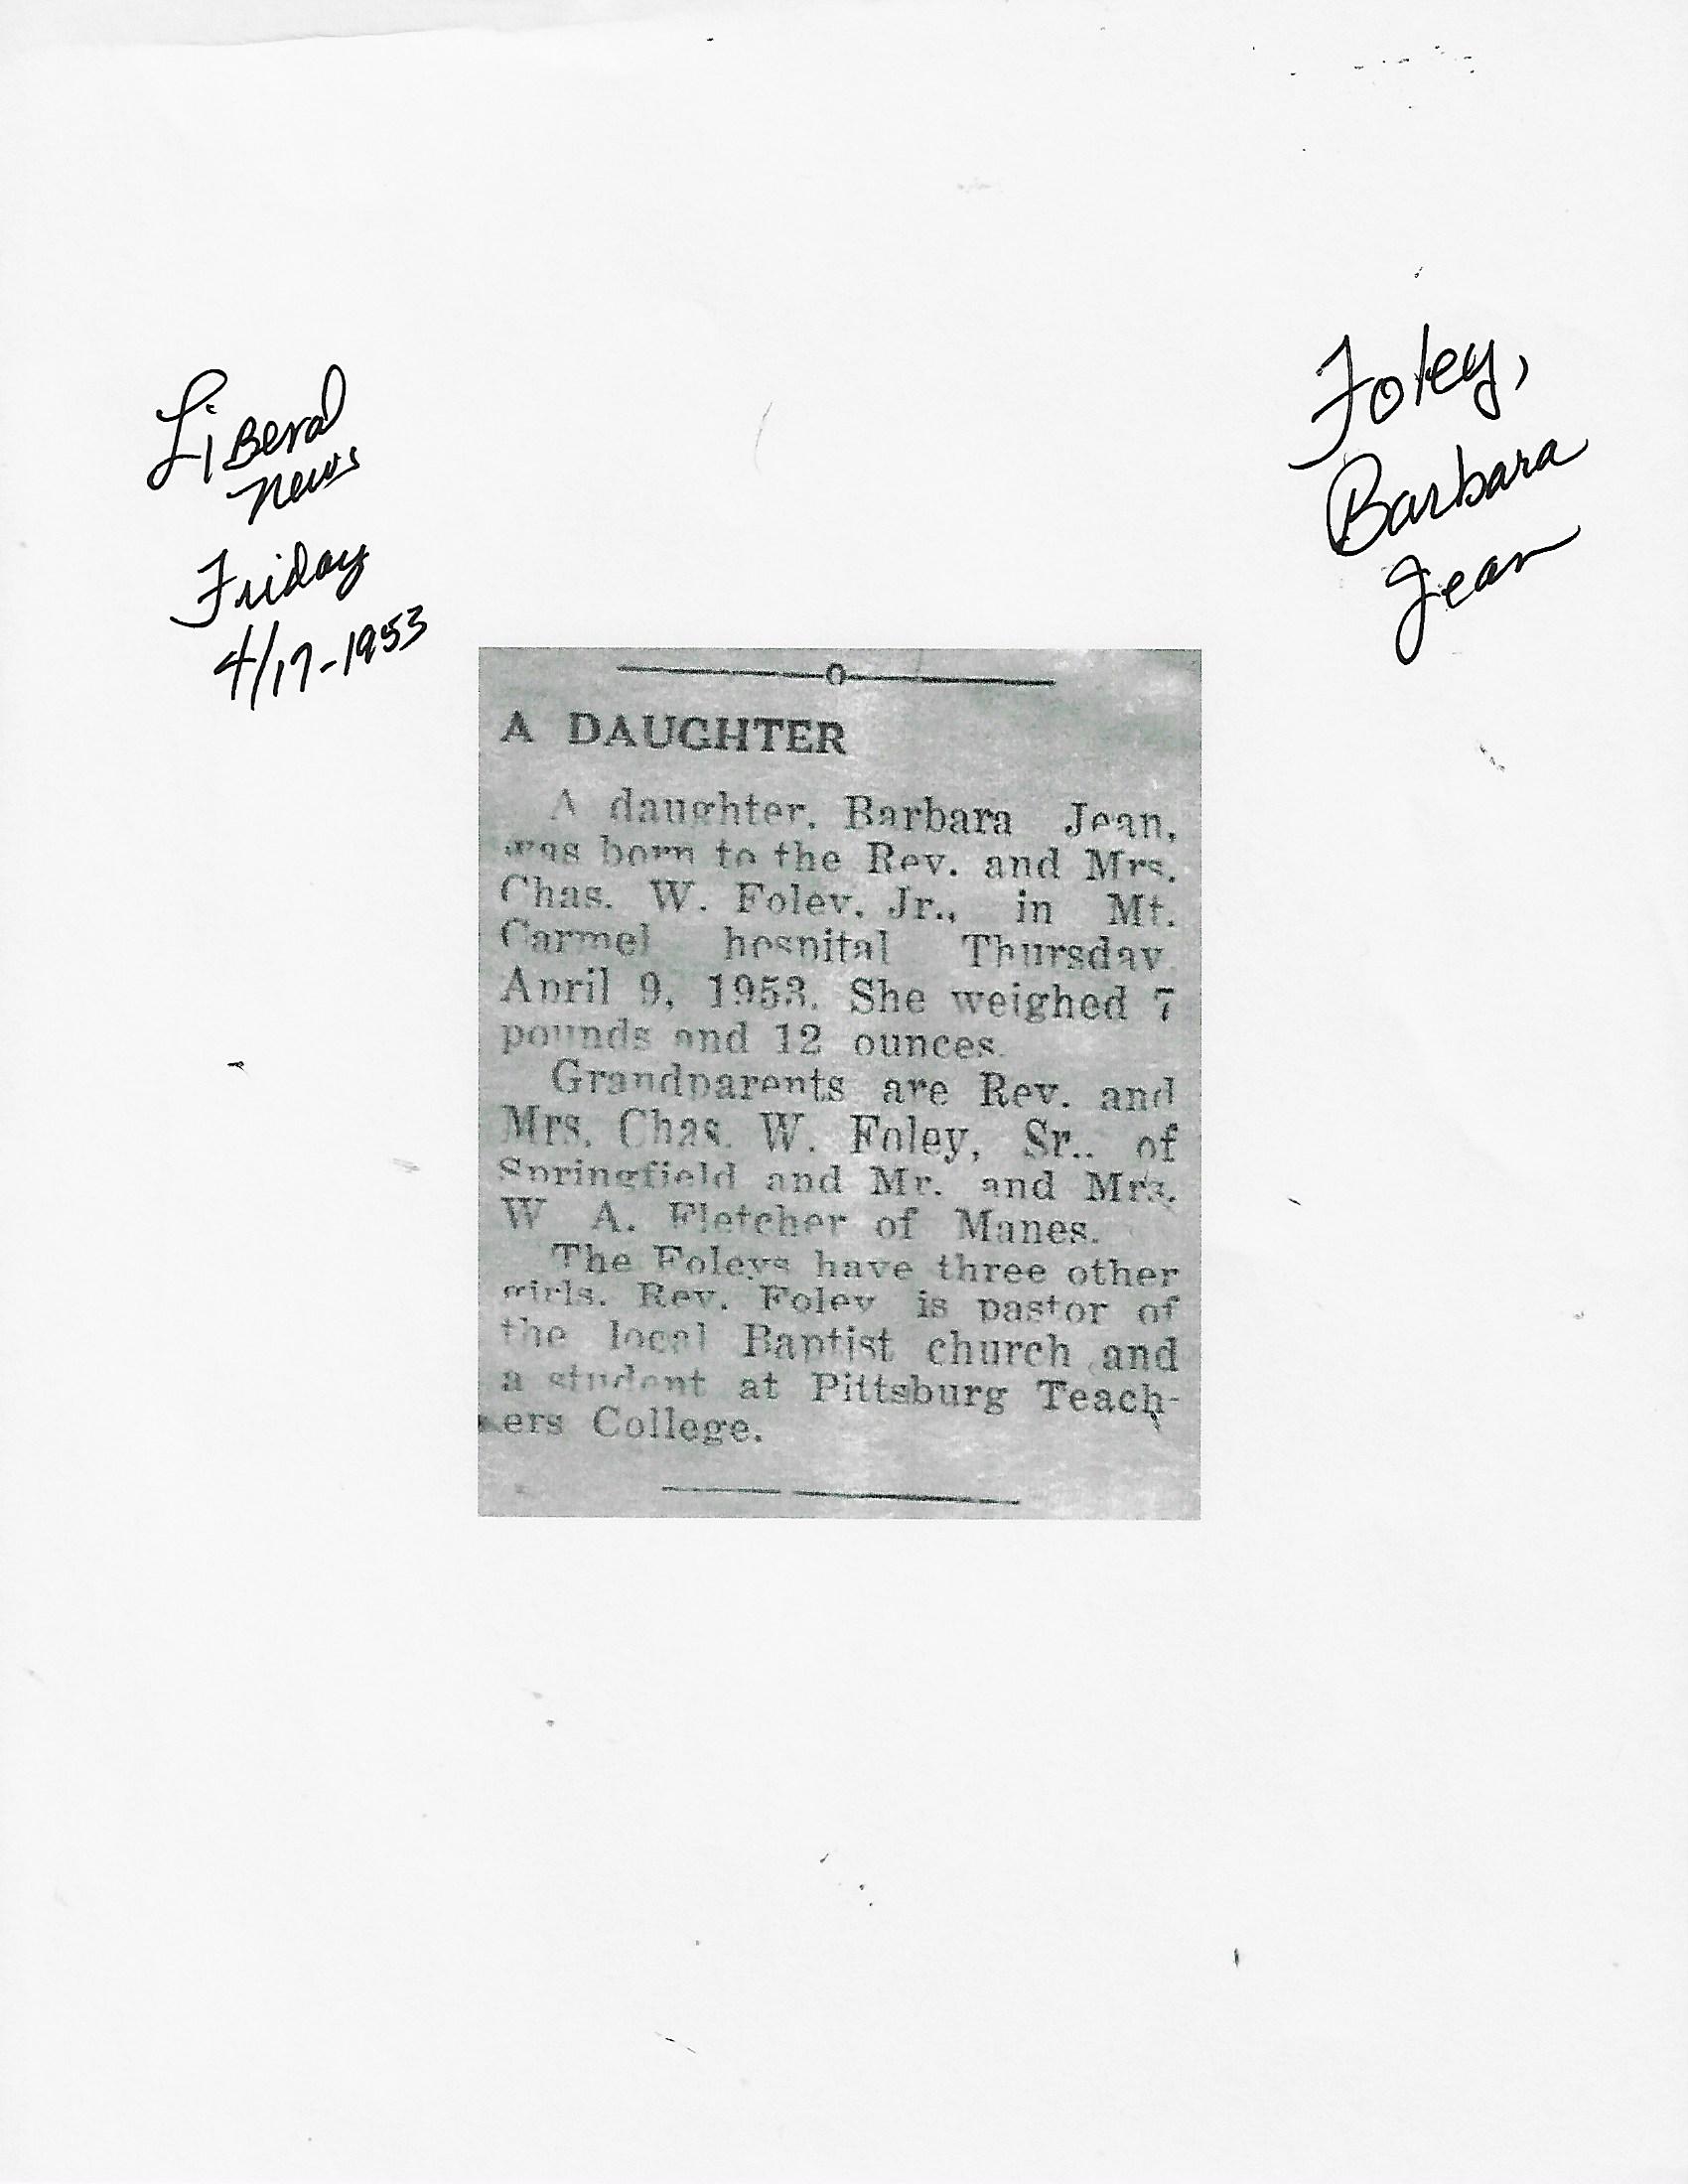 Liberal
News
Friday
4/17-1953
Foley,
Barbara
Jean
A DAUGHTER
A daughter, Barbara Jean,
was born to the Rev. and Mrs.
Chas. W. Foley, Jr., in Mt.
Carmel hospital Thursday
April 9, 1953. She weighed 7
pounds and 12 ounces.
Grandparents are Rev. and
Mrs. Chas. W. Foley, Sr., of
Springfield and Mr. and Mrs.
W A. Fletcher of Manes.
The Foleys have three other
girls. Rev. Foley is pastor of
the local Baptist church and
a student at Pittsburg Teach-
ers College.